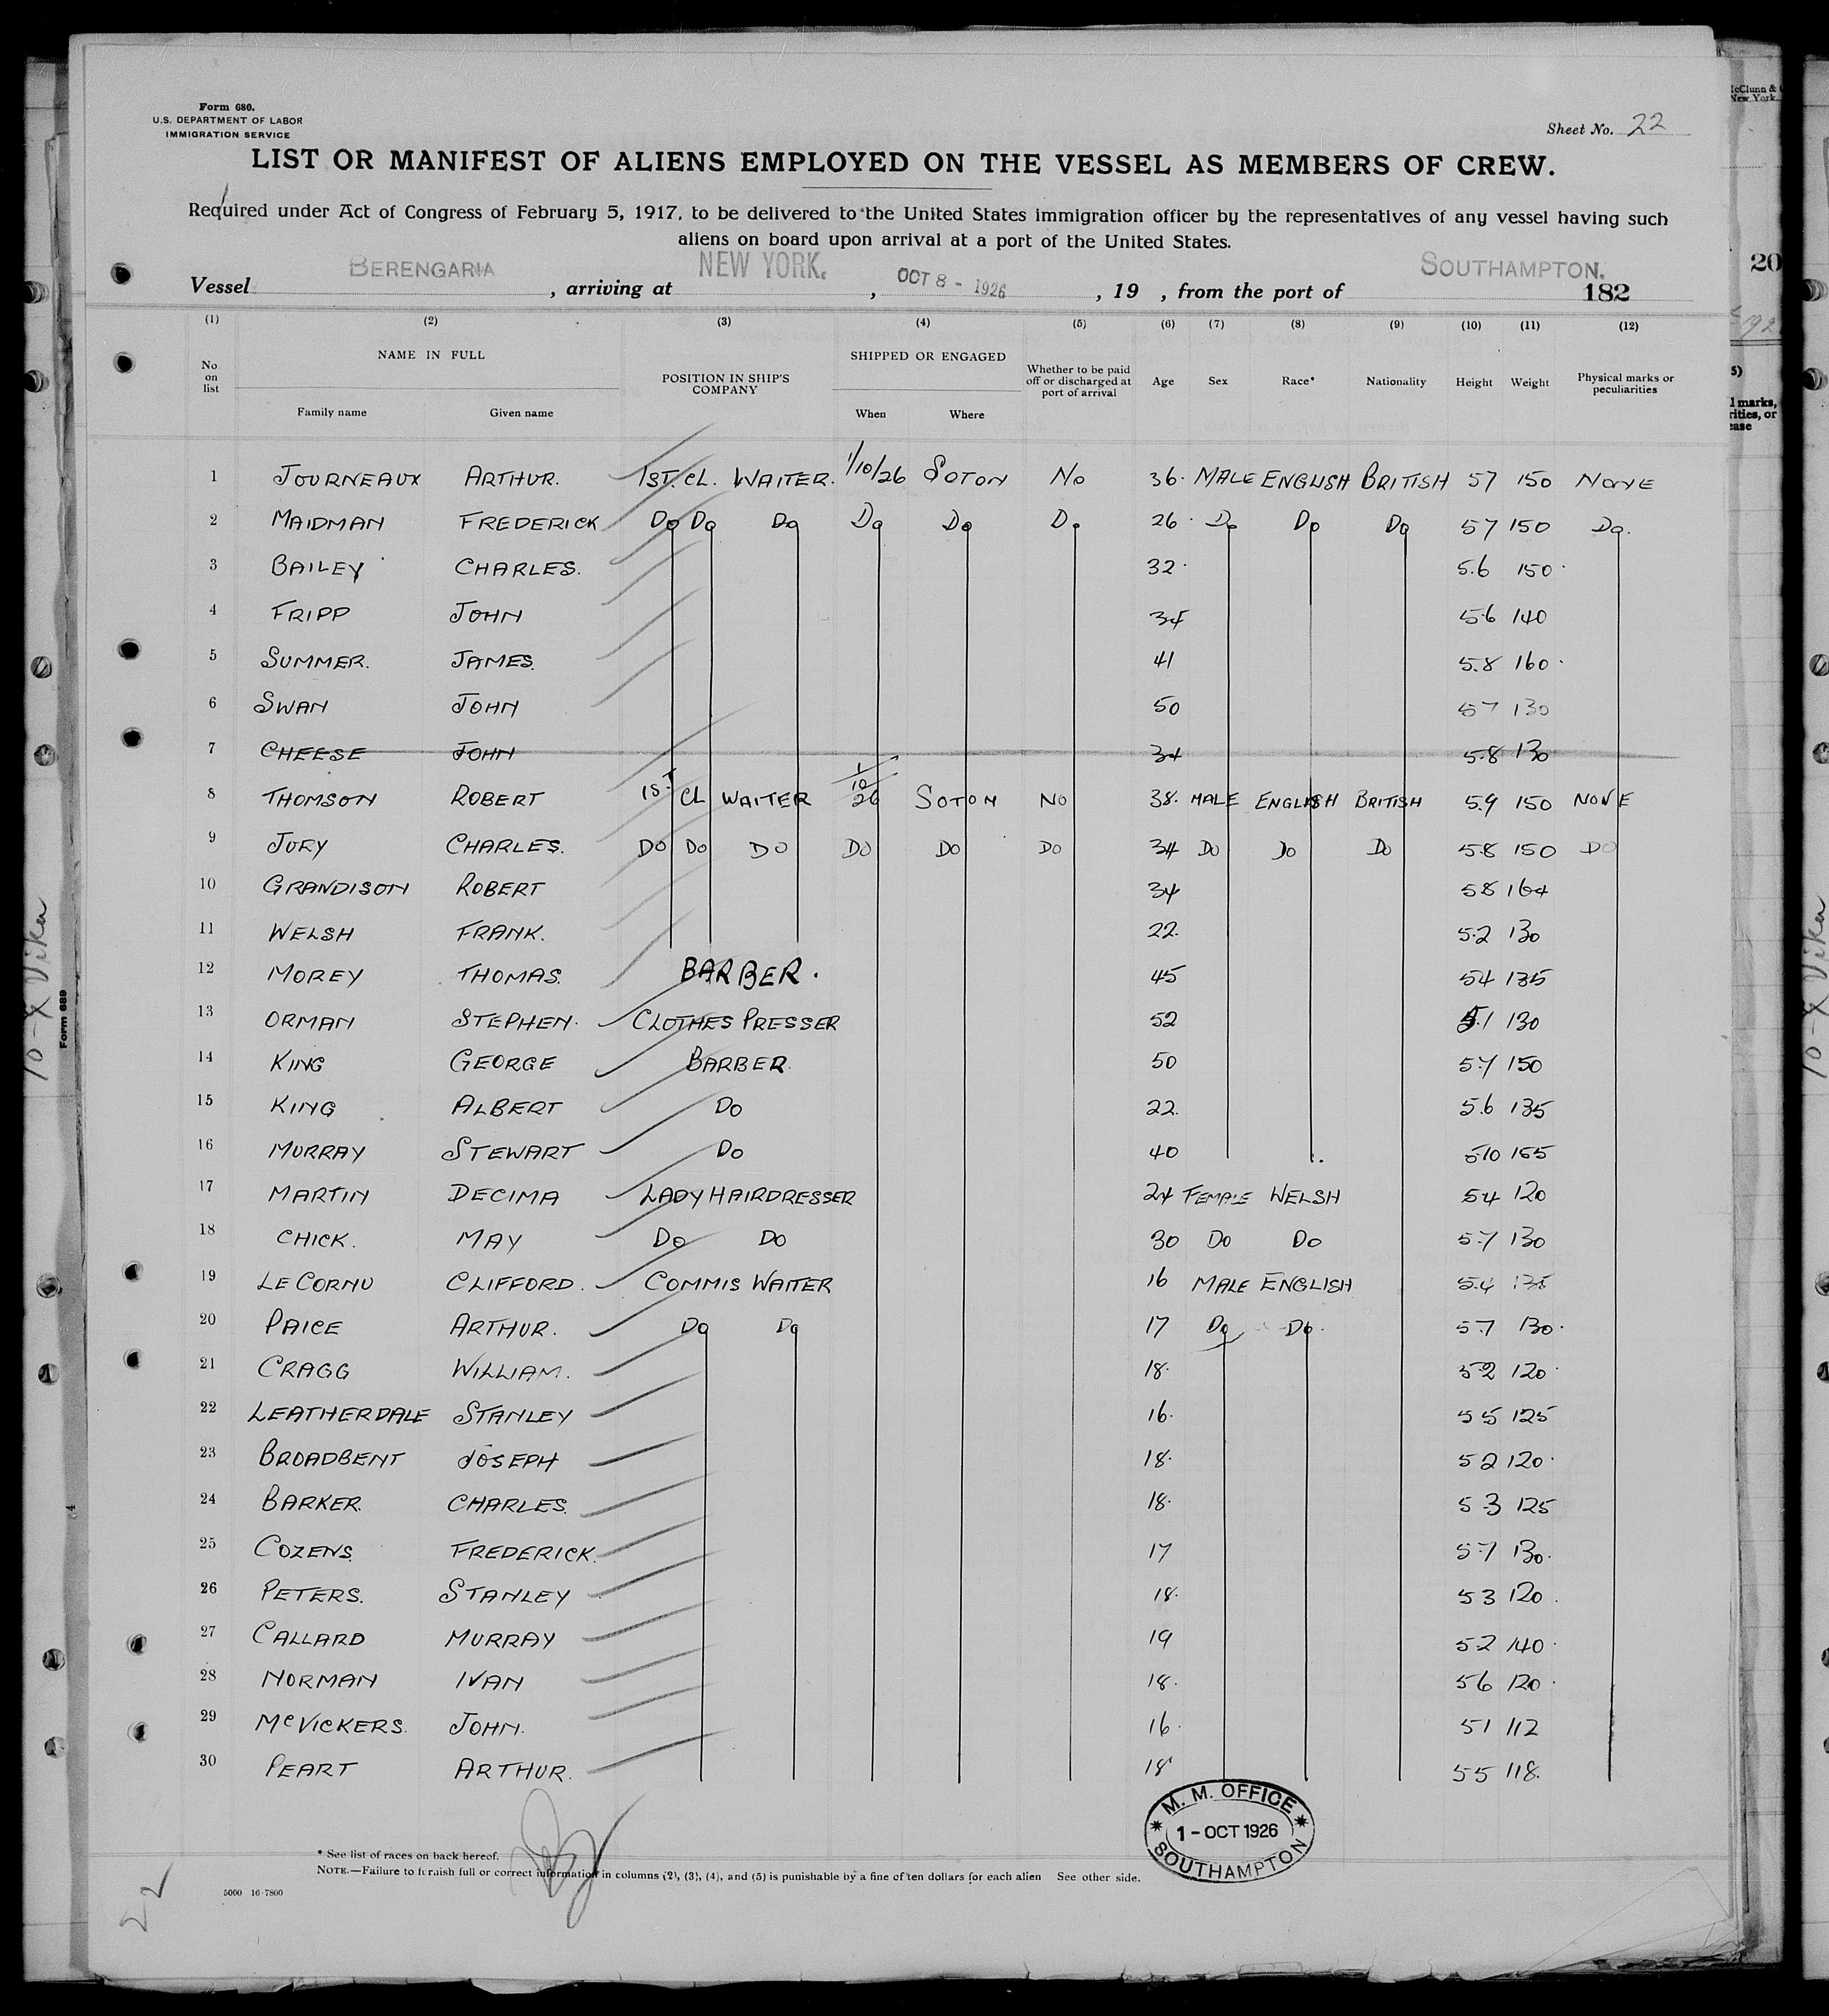 Form 680.
U.S. DEPARTMENT OF LABOR
IMMIGRATION SERVICE
Sheet No. 22
LIST OR MANIFEST OF ALIENS EMPLOYED ON THE VESSEL AS MEMBERS OF CREW.
Required under Act of Congress of February 5, 1917, to be delivered to the United States immigration officer by the representatives of any vessel having such
aliens on board upon arrival at a port of the United States.
Vessel BERENGARIA, arriving at NEW YORK., OCT 8 - 1926, 19 , from the port of SOUTHAMPTON. 182
(1) (2) (3) (4) (5) (6) (7) (8) (9) (10) (11) (12)
No on list NAME IN FULL Family name Given name POSITION IN SHIP'S COMPANY SHIPPED OR ENGAGED When Where Whether to be paid off or discharged at port of arrival Age Sex Race* Nationality Height Weight Physical marks or peculiarities
1 JOURNEAUX ARTHUR. 1ST. CL. WAITER. 1/10/26 SOTON NO 36. MALE ENGLISH BRITISH 57 150 NONE
2 MAIDMAN FREDERICK DO DO DO DO DO DO 26. DO DO DO 57 150 DO.
3 BAILEY CHARLES. 32. 5.6 150.
4 FRIPP JOHN 34 5.6 140
5 SUMMER. JAMES. 41 5.8 160.
6 SWAN JOHN 50 57 130
7 CHEESE JOHN 34 5.8 130
8 THOMSON ROBERT 1ST CL WAITER 1/10/26 SOTON NO 38. MALE ENGLISH BRITISH 5.9 150 NONE
9 JURY CHARLES. DO DO DO DO DO DO 34 DO DO DO 5.8 150 DO
10 GRANDISON ROBERT 34 58 164
11 WELSH FRANK. 22. 5.2 130
12 MOREY THOMAS. BARBER. 45 54 135
13 ORMAN STEPHEN. CLOTHES PRESSER 52 5.1 130
14 KING GEORGE BARBER. 50 5.7 150
15 KING ALBERT DO 22. 5.6 135
16 MURRAY STEWART DO 40 5.10 165
17 MARTIN DECIMA LADY HAIRDRESSER 24 FEMALE WELSH 54 120
18 CHICK. MAY DO DO 30 DO DO 5.7 130
19 LE CORNU CLIFFORD. COMMIS WAITER 16 MALE ENGLISH 5.4 135
20 PAICE ARTHUR. DO DO 17 DO DO. 5.7 130.
21 CRAGG WILLIAM. 18. 52 120.
22 LEATHERDALE STANLEY 16. 55 125
23 BROADBENT JOSEPH 18. 52 120.
24 BARKER. CHARLES. 18. 5.3 125
25 COZENS FREDERICK. 17 5.7 130.
26 PETERS. STANLEY 18. 53 120.
27 CALLARD MURRAY 19 52 140.
28 NORMAN IVAN 18. 56 120.
29 McVICKERS. JOHN. 16. 51 112
30 PEART ARTHUR. 18 55 118.
M. M. OFFICE
1 - OCT 1926
SOUTHAMPTON
* See list of races on back hereof.
NOTE.—Failure to furnish full or correct information in columns (2), (3), (4), and (5) is punishable by a fine of ten dollars for each alien See other side.
5000 16-7800
22
Form 689